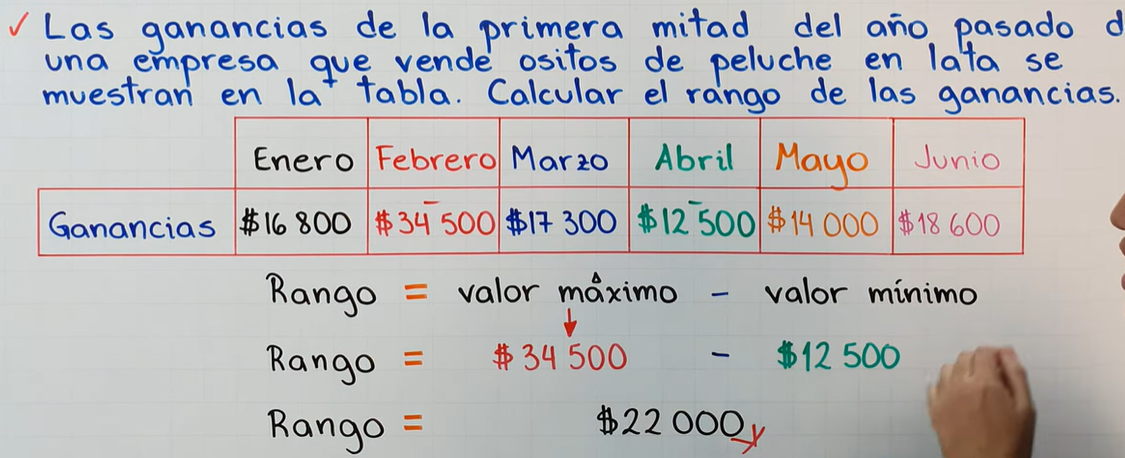 ✓ Las ganancias de la primera mitad del año pasado d
una empresa que vende ositos de peluche en lata se
muestran en la tabla. Calcular el rango de las ganancias.
Enero Febrero Marzo Abril Mayo Junio
Ganancias $16 800 $34 500 $17 300 $12 500 $14 000 $18 600
Rango = valor máximo - valor mínimo
Rango = $34 500 - $12 500
Rango = $22 000